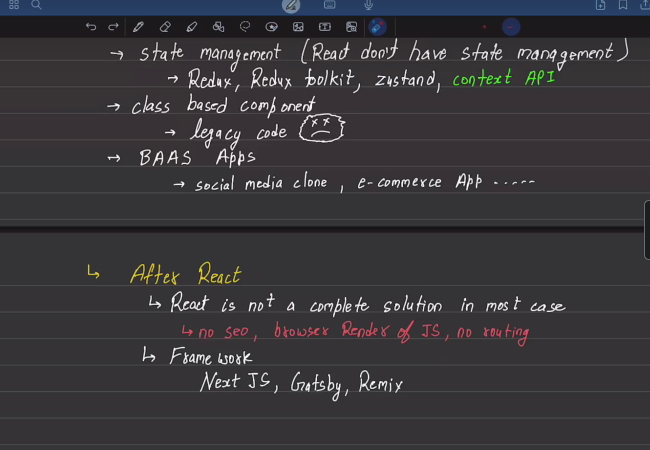 → state management (React don't have state management)
→ Redux, Redux toolkit, zustand, context API
→ class based component
→ legacy code
→ BAAS Apps
→ social media clone, e-commerce App .....
↳ After React
↳ React is not a complete solution in most case
↳ no seo, browser Render of JS, no routing
↳ Framework
Next JS, Gatsby, Remix